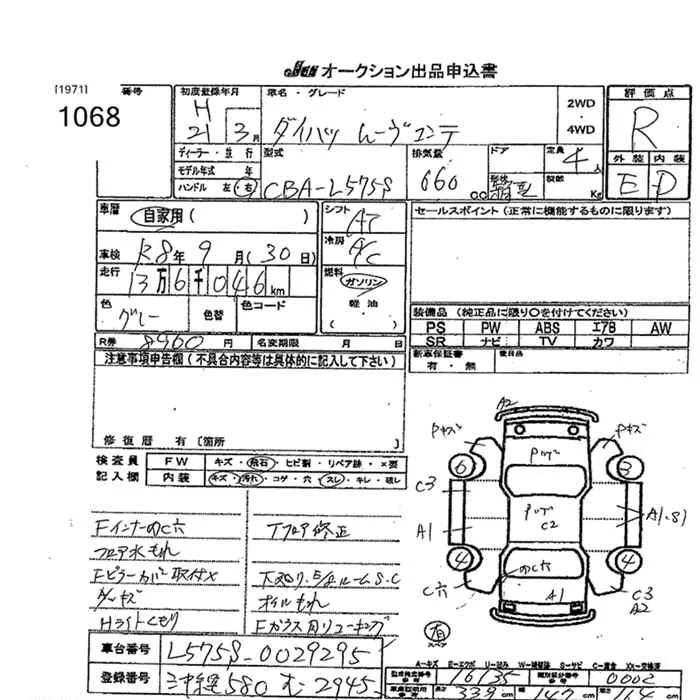 JU オークション出品申込書
[1971] 番号
1068
初度登録年月
H
21 3月
車名・グレード
ダイハツ ムーヴコンテ
2WD
4WD
評価点
R
外装 内装
E D
ディーラー・並行
モデル年式 年
ハンドル 左・右
型式
CBA-L575S
排気量
660 cc
ドア
定員
4人
積載
Kg
車歴
自家用( )
車検 R8年 9月(30日)
走行
13万6千046km
シフト
AT
冷房
A/C
燃料
ガソリン
軽油
( )
セールスポイント(正常に機能するものに限ります)
色
グレー
色替
色コード
装備品(純正品に限り○を付けてください)
PS PW ABS エアB AW
SR ナビ TV カワ
R券 8960円
名変期限 月 日
新車保証書
有・無
後日品
注意事項申告欄(不具合内容等は具体的に記入して下さい)
修復歴 有〔箇所 〕
検査員
記入欄
FW キズ・飛石・ヒビ割・リペア跡・×要
内装 キズ・汚れ・コゲ・穴・スレ・キレ・破レ
FインナーのC穴
フロア水もれ
Fピラーカバー取付×
ダイキズ
Hライトくもり
Tフロア修正
下スリ,E/gルームS.C
オイルもれ
Fガラス内リューキング
A2
Pキズ
Pキズ
6
3
C3
A1
A1,B1
4
4
C穴
C3
A2
C2
のC穴
A1
有
スペア
A-キズ E-エクボ U-凹み W-補修跡 S-サビ C-腐食 XX-交換済
車台番号 L575S-0029295
登録番号 580 む 2945
16135
0002
339
147